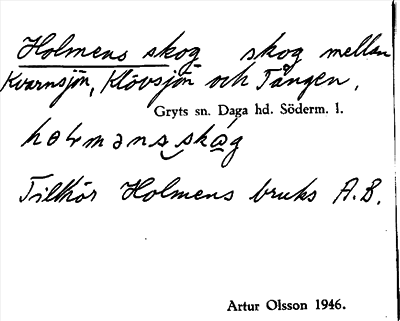 Holmens skog skog mellan
Kvarnsjön, Klövsjön och Tången.
Gryts sn. Daga hd. Söderm. l.
holmans skog
Tillhör Holmens bruks A.B.
Artur Olsson 1946.